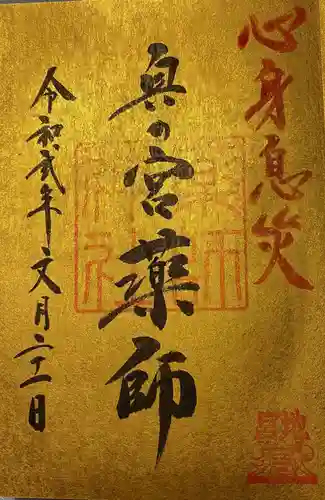 心身息災
奥の宮薬師
令和弐年文月二十一日